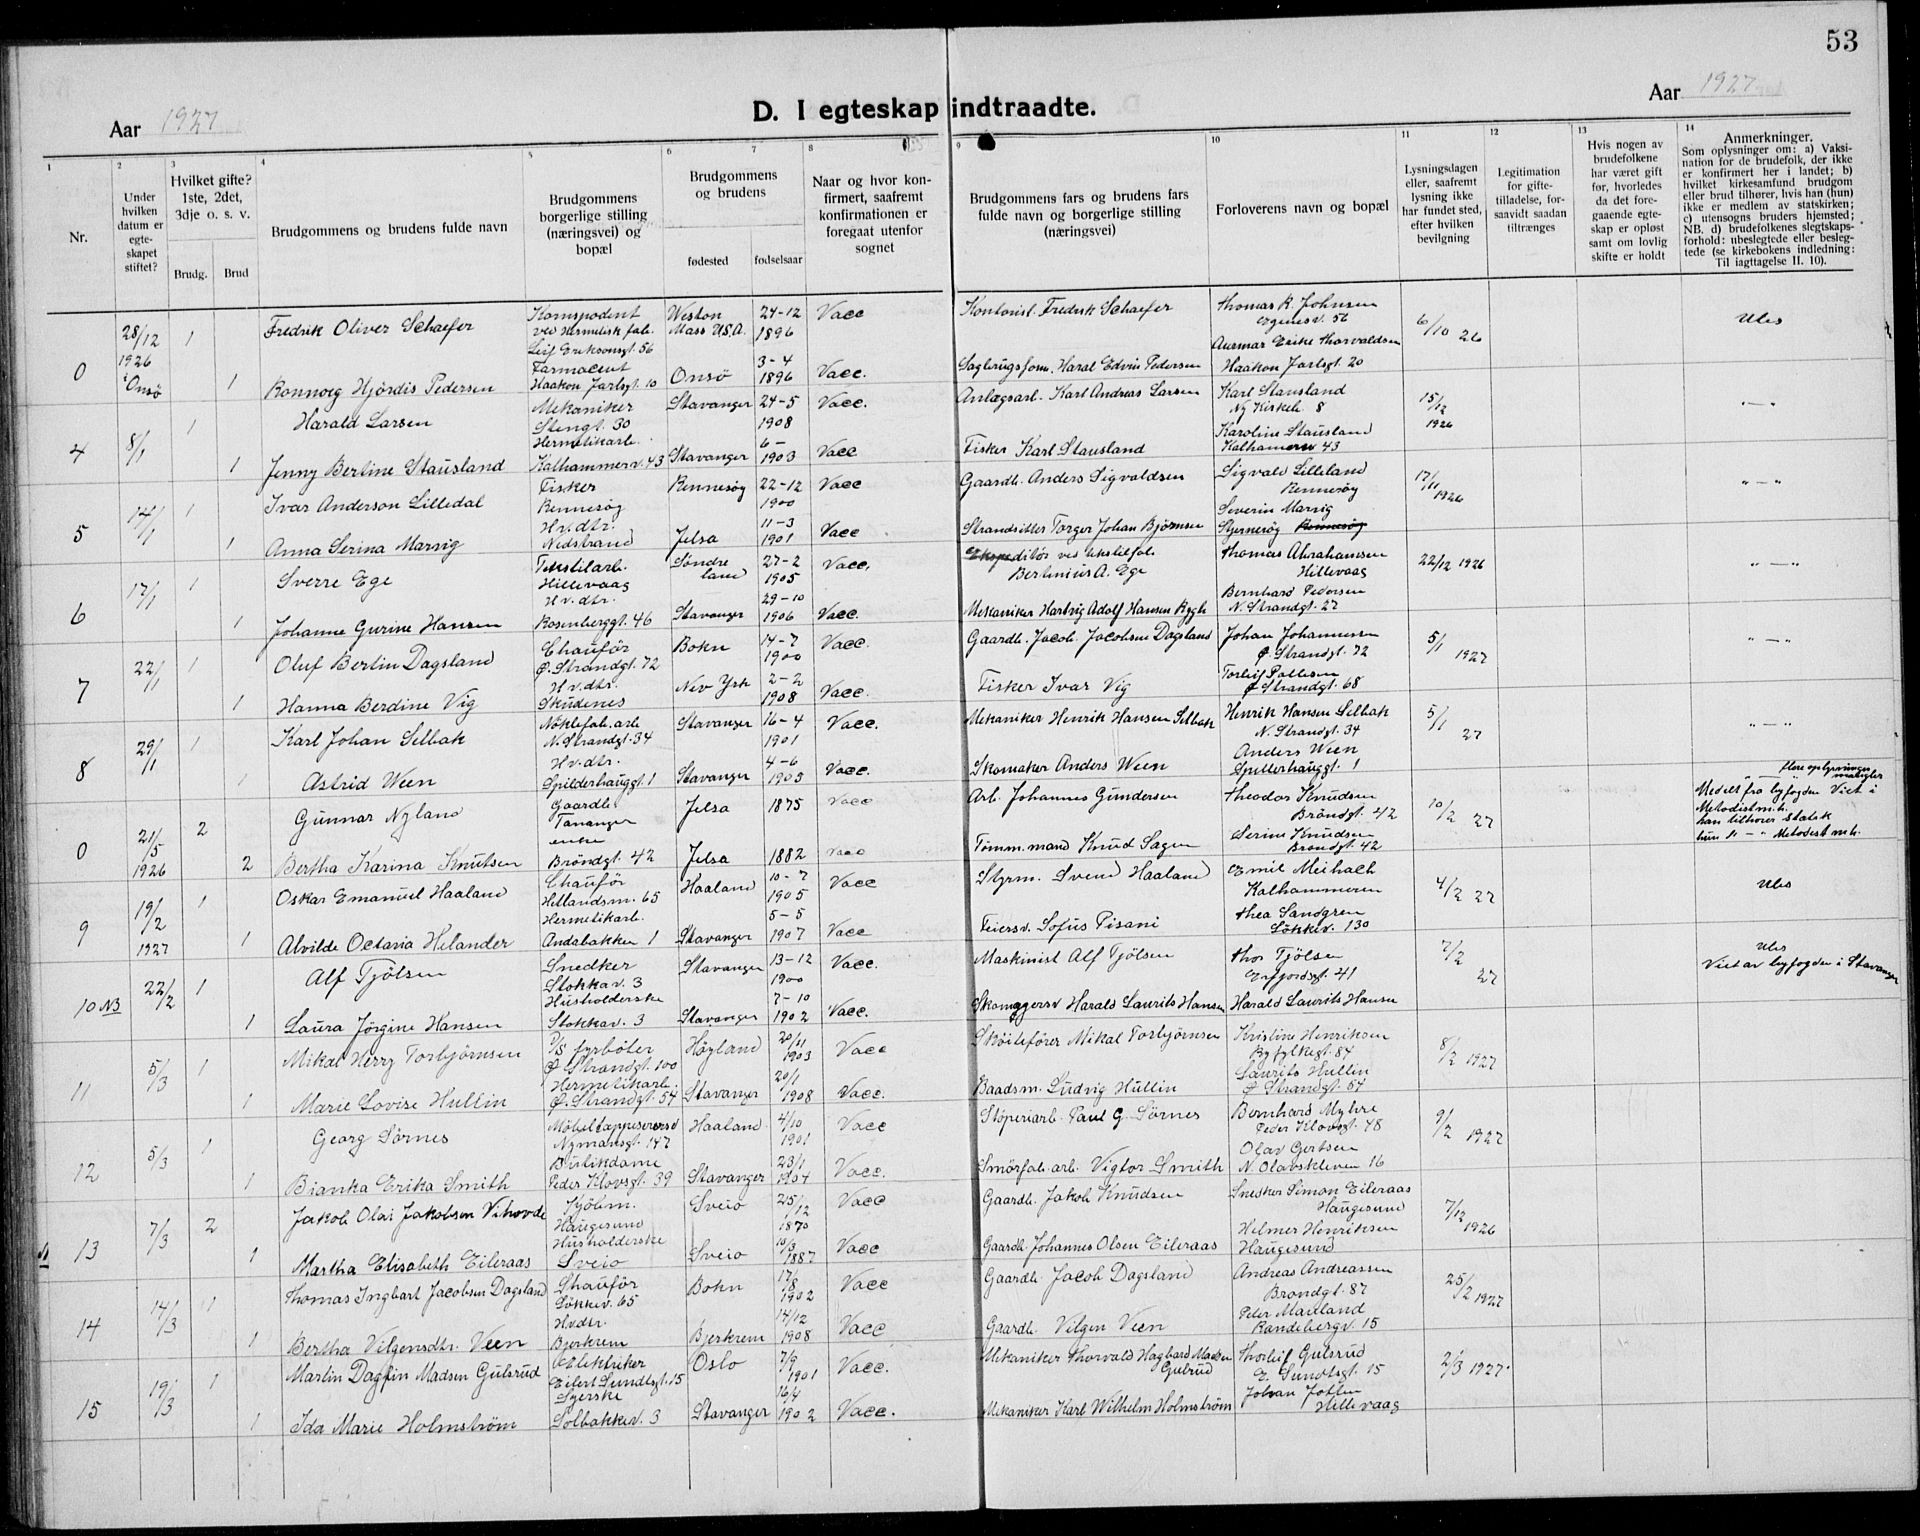 53
Aar 1927
D. I egteskap indtraadte.
Aar 1927
1 2 3 4 5 6 7 8 9 10 11 12 13 14
Nr.
Under hvilken datum er egte- skapet stiftet?
Hvilket gifte? 1ste, 2det, 3dje o. s. v.
Brudg. Brud
Brudgommens og brudens fulde navn
Brudgommens borgerlige stilling (næringsvei) og bopæl
Brudgommens og brudens
fødested fødselsaar
Naar og hvor kon- firmert, saafremt konfirmationen er foregaat utenfor sognet
Brudgommens fars og brudens fars fulde navn og borgerlige stilling (næringsvei)
Forloverens navn og bopæl
Lysningsdagen eller, saafremt lysning ikke har fundet sted, efter hvilken bevilgning
Legitimation for gifte- tilladelse, for- saavidt saadan tiltrænges
Hvis nogen av brudefolkene har været gift før, hvorledes da det fore- gaaende egte- skap er opløst samt om lovlig skifte er holdt
Anmerkninger.
Som oplysninger om: a) Vaksi- nation for de brudefolk, der ikke er konfirmert her i landet; b) hvilket kirkesamfund brudgom eller brud tilhører, hvis han (hun) ikke er medlem av statskirken; c) utensogns bruders hjemsted; NB. d) brudefolkenes slegtskaps- forhold: ubeslegtede eller besleg- tede (se kirkebokens indledning: Til iagttagelse II. 10).
0 28/12 1926 i Onsø 1 Fredrik Oliver Schaefer Korrespodent ved Hermetisk fab. Leif Eriksonsgt. 56 Weston Mass U.S.A. 24-12 1896 Vacc Kontorist. Fredrik Schaefer Thomas R. Johnsen Egenesv. 56 6/10 26 Ubs
1 Ronnog Hjördis Pedersen Farmaceut Haakon Jarlsgt. 10 Onsö 3-4 1896 Vacc. Sagbrugsform. Haral Edvin Pedersen Thorvaldsen Haakon Jarlsgt. 20
4 8/1 1 Harald Larsen Mekaniker Stengt. 30 Stavanger 24-5 1908 Vacc. Anlægsarb. Karl Andreas Larsen Karl Stausland Ny Kirkeb. 8 15/12 1926 " — "
1 Jenny Bertine Stausland Hermetikarb. Kalhammerv. 43 Stavanger 6- 1903 Vacc Fisker Karl Stausland Karoline Stausland Kalhamerv 43
5 14/1 1 Ivar Anderson Lilledal Fisker Rennesög Rennesög 22-12 1900 Vacc Gaardb. Anders Sigvaldsen Sigvald Lilleland Rennesög 17/11 1926 " — "
1 Anna Serina Marvig Hv.dtr. Nedstrand Jelsa 11-3 1901 Vacc Strandsitter Torger Johan Björnsen Severin Marvig Sjernesög Rennesög
6 17/1 1 Sverre Ege Tekstilarb. Hillevaag Söndre land 27-2 1905 Vacc. Ekspeditör ved tekstilfab. Bertinius A. Ege Thomas Abrahamsen Hillevaag 22/12 1926 " — "
1 Johanne Gurine Hansen Hv.dtr. Rosenberggt. 46 Stavanger 29-10 1906 Vacc. Mekaniker Hartvig Adolf Hansen Rygh Bernhard Pedersen N. Strandgt. 27
7 22/1 1 Oluf Bertin Dagsland Chauför Ø. Strandgt. 72 Bokn 14-7 1900 Vacc. Gaardb. Jacob Jacobsen Dagsland Johan Johannessen Ø. Strandgt. 72 5/1 1927 " — "
1 Hanna Berdine Vig Hv.dtr. Skudenes Nev Yrk 2-2 1908 Vacc. Fisker Ivar Vig Torleif Pallesen Ø Strandgt. 68
8 29/1 1 Karl Johan Selbak Nöklefab.arb N. Strandgt. 34 Stavanger 16-4 1901 Vacc. Mekaniker Henrik Hansen Selbak Henrik Hansen Selbak N. Strandgt. 34 5/1 27 " — "
1 Astrid Ween Hv.dtr. Spilderhauggt. 1 Stavanger 4-6 1903 Vacc. Skomaker Anders Ween Anders Ween Spilderhauggt. 1
0 21/5 1926 2 Gunnar Nyland Gaardb Tananger Jelsa 1875 Vacc Arb. Johannes Gundersen Theodor Knudsen Bröndgt. 42 10/2 27 " — " flere oplysninger mangler Medelt fra byfogden Viet i Metodistm.k. han tilhorer statsk hun " — " Metodist m.k.
2 Bertha Karina Knutsen enke Bröndgt. 42 Jelsa 1882 Vacc Tömm.mand Knud Sagen Serine Knudsen Bröndgt. 42
9 19/2 1927 1 Oskar Emanuel Haaland Chauför Hetlandsm. 65 Haaland 10-7 1905 Vacc Styrm. Svend Haaland Emil Meihach Kalhammeren 4/2 27 Ubs
1 Alvilde Octavia Helander Hermetikarb. Andabakken 1 Stavanger 5-5 1907 Vacc Feiersv. Sofus Pisani Thea Sandgren Lökkev. 130
10 N3 22/2 1 Alf Tjölsen Snedker Stokkav. 3 Stavanger 13-12 1900 Vacc. Maskinist Alf Tjölsen Thor Tjölsen Erfjordsgt. 41 7/2 27 Ubs Viet av byfogden i Stavanger
1 Laura Jörgine Hansen Husholderske Stokkav. 3 Stavanger 7-10 1902 Vacc. Skomagersv Harald Laurits Hansen Harald Laurits Hansen
11 5/3 1 Mikal Herry Torbjörnsen D/s fyrböter Ø Strandgt. 100 Höyland 20/11 1903 Vacc Sköiteförer Mikal Torbjörnsen Kristine Henriksen Ryfylkegt. 84 8/2 1927
1 Marie Lovise Hullin Hermetikarb. Ø. Strandgt. 54 Stavanger 20/1 1908 Vacc. Baadsm. Ludvig Hullin Laurits Hullin Ø Strandgt. 54
12 5/3 1 Georg Sörnes Möbeltappserersv Nymansgt. 147 Haaland 4/10 1901 Vacc Stöperiarb. Paul G. Sörnes Bernhard Myhre Peder Klovsgt. 78 9/2 1927
1 Bianka Erika Smith Butikdame Peder Klovsgt. 39 Stavanger 23/1 1904 Vacc. Smörfab.arb. Vigtor Smith Olav Gertsen N. Olavskleven 16
13 7/3 2 Jakob Olai Jakobsen Vihovde Kjöbm. Haugesund Sveio 25/12 1870 Vacc Gaardb. Jakob Knudsen Snedker Simon Eileraas Haugesund 7/12 1926
1 Martha Elisabeth Eileraas Husholderske Sveio Sveio 10/3 1887 Vacc Gaardb. Johannes Olsen Eileraas Helmer Henriksen Haugesund
14 14/3 1 Thomas Ingbart Jacobsen Dagsland Shauför Lökkev. 65 Bokn 17/8 1902 Vacc Gaardb. Jacob Dagsland Andreas Andreassen Bröndgt. 87 25/2 1927
1 Bertha Vilgensdtr. Veen Hvdtr. Bjerkrem Bjerkrem 14/12 1908 Vacc Gaardb. Vilgen Veen Peter Mauland Randebergv. 15
15 19/3 1 Martin Dagfin Madsen Gulsrud Elektriker Eilert Sundtsgt. 15 Oslo 7/9 1901 Vacc. Mekaniker Thorvald Hagbard Madsen Gulrud Thorleif Gulsrud E. Sundtsgt. 15 2/3 1927.
1 Ida Marie Holmström Syerske Solbakkev. 3 Stavanger 16/4 1902 Vacc. Mekaniker Karl Wilhelm Holmström Johan Jotten Hillevaag